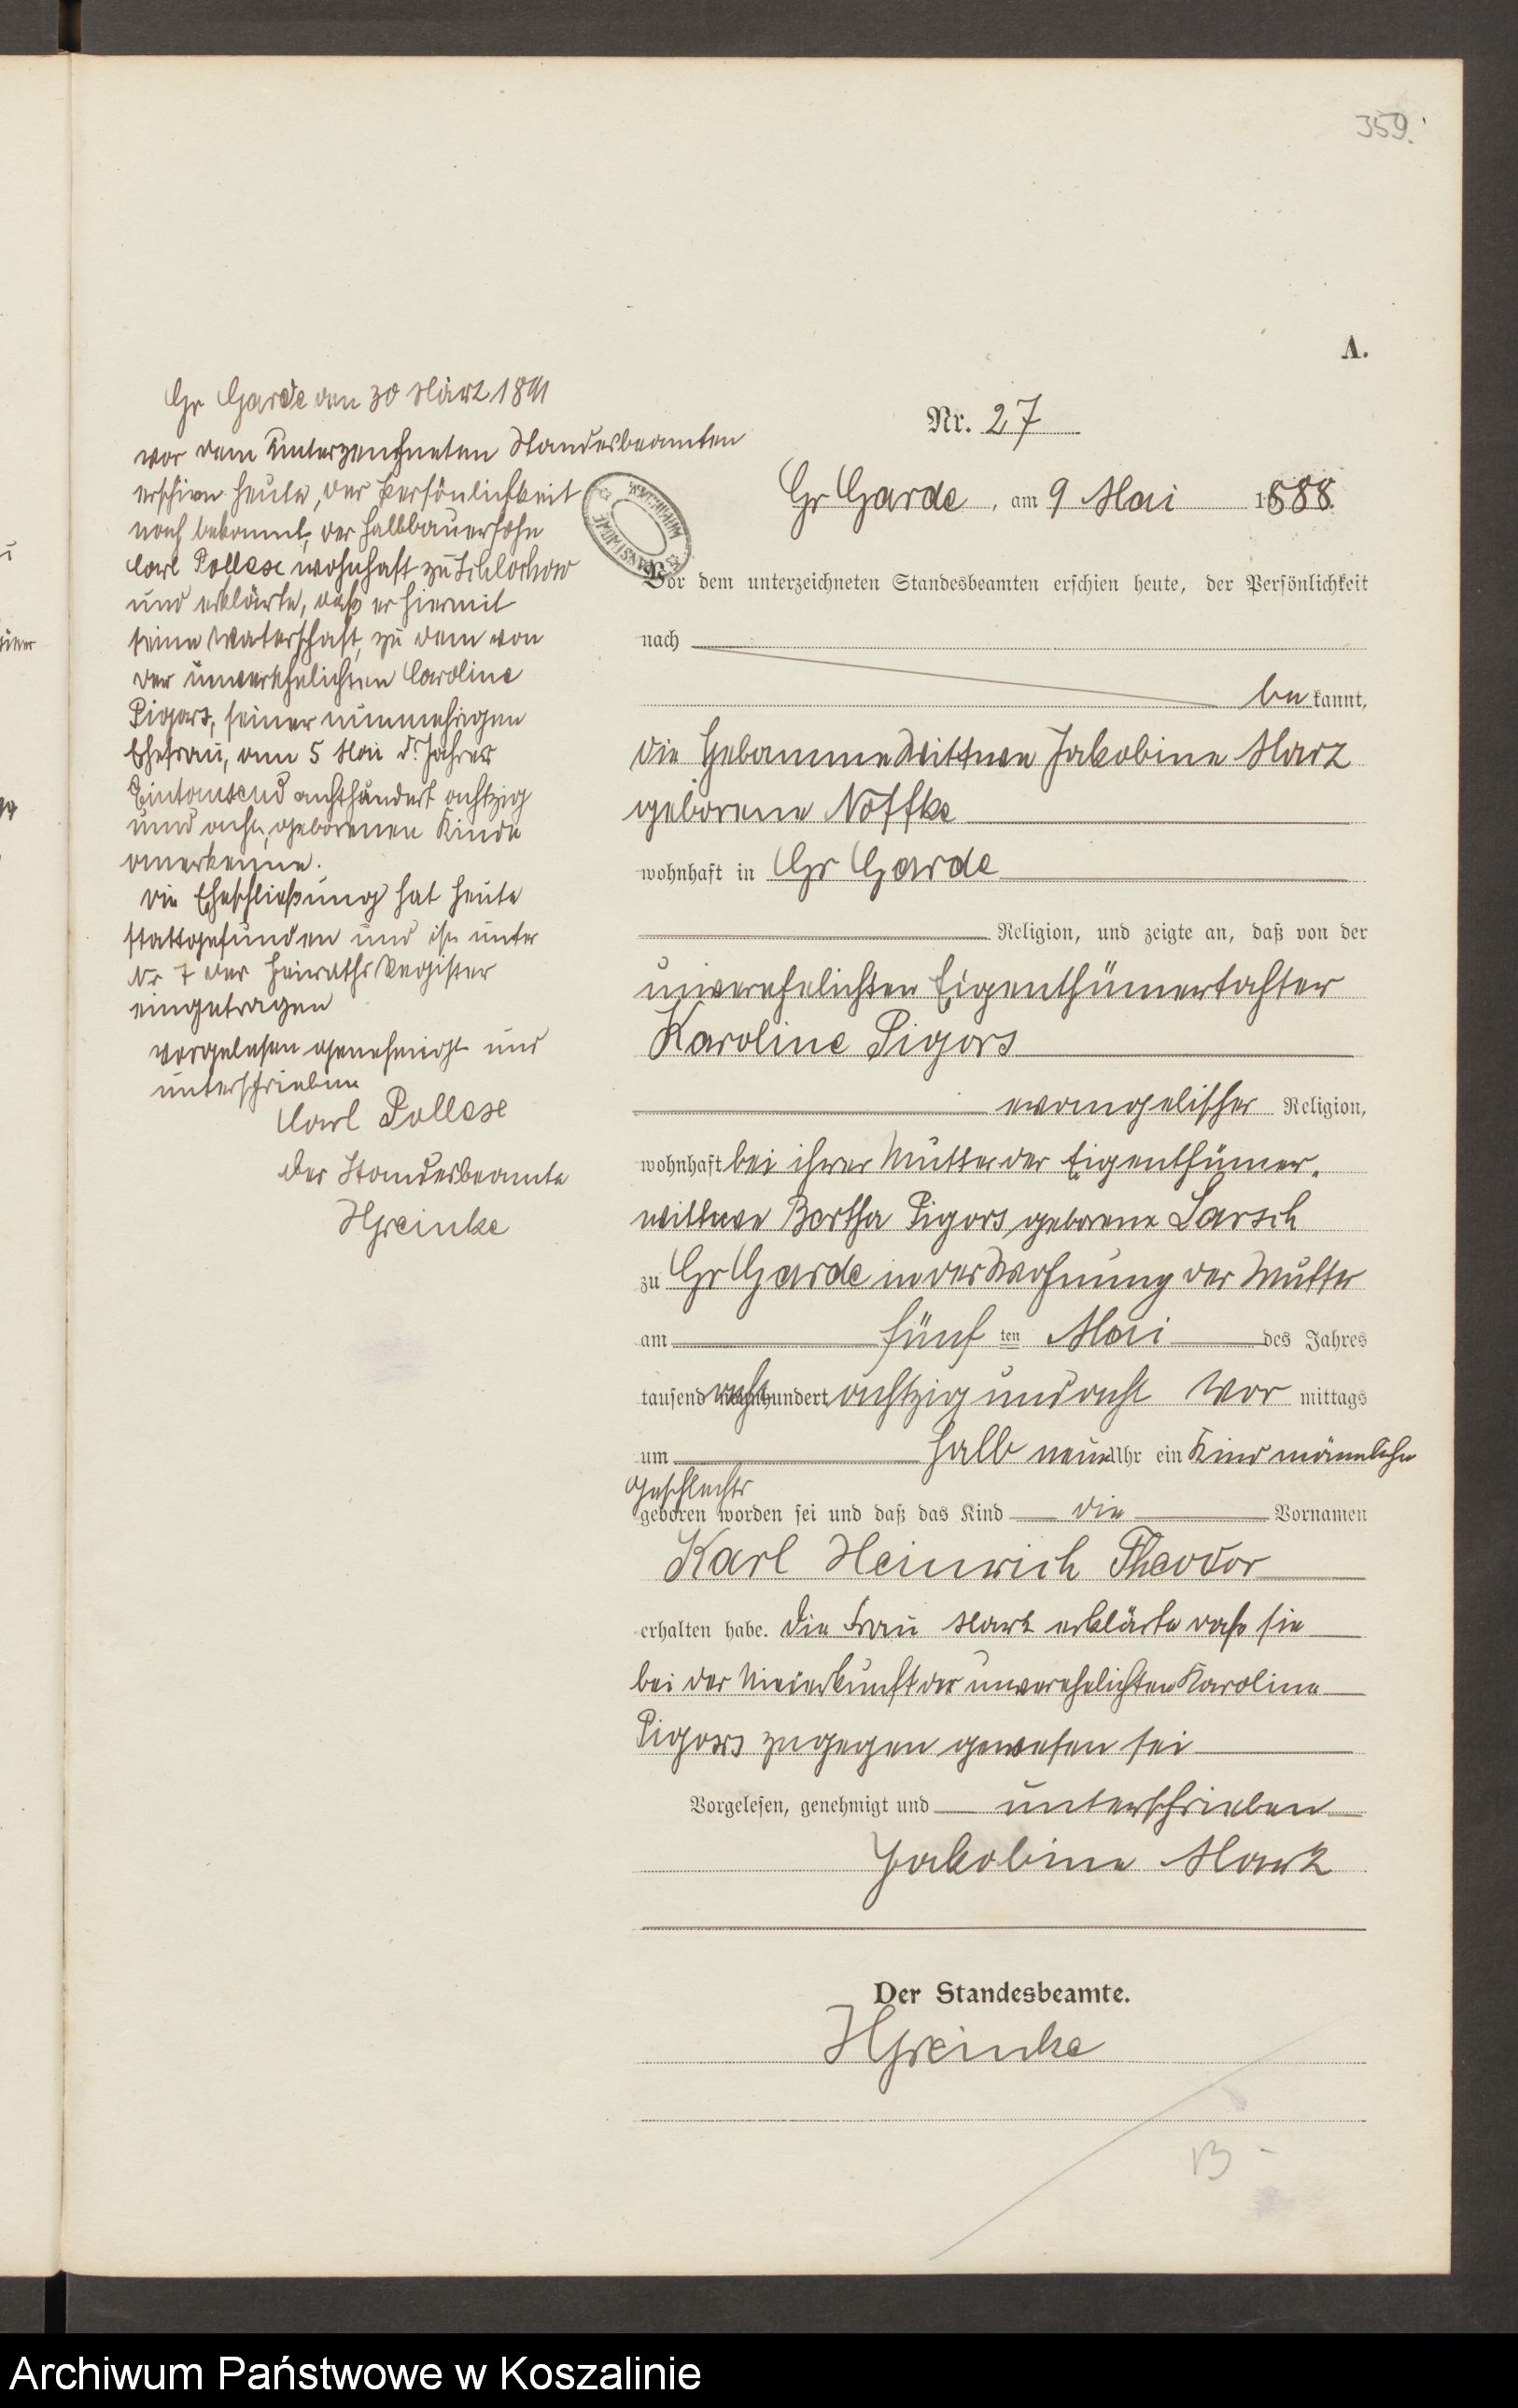 359.
A.
Gr Garde den 30 März 1891
vor dem Unterzeichneten Standesbeamten
erschien heute, der Persönlichkeit
nach bekannt, der Halbbauersohn
Carl Pollase wohnhaft zu Schlochow
und erklärte, daß er hiermit
seine Vaterschaft, zu dem von
der unverehelichten Caroline
Pigors, seiner nunmehrigen
Ehefrau, am 5 Mai d. Jahres
Eintausend achthundert achtzig
und acht, geborenen Kinde
anerkenne.
Die Eheschließung hat heute
stattgefunden und ist unter
Nr 7 der Heiraths Register
eingetragen
Vorgelesen genehmigt und
unterschrieben
Carl Pollase
Der Standesbeamte
HGreinke
Nr. 27
Gr Garde, am 9 Mai 1888.
Vor dem unterzeichneten Standesbeamten erschien heute, der Persönlichkeit
nach
be kannt,
die Hebamme Wittwe Jakobine Marz
geborene Noffke
wohnhaft in Gr Garde
Religion, und zeigte an, daß von der
unverehelichten Eigenthümertochter
Karoline Pigors
evangelischer Religion,
wohnhaft bei ihrer Mutter der Eigenthümer-
wittwe Bertha Pigors geborene Larsch
zu Gr Garde in der Wohnung der Mutter
am fünf ten Mai des Jahres
tausend acht hundert achtzig und acht Vor mittags
um halb neun Uhr ein Kind männlichen
Geschlechts
geboren worden sei und daß das Kind die Vornamen
Karl Heinrich Theodor
erhalten habe. Die Frau Marz erklärte daß sie
bei der Niederkunft der unverehelichten Karoline
Pigors zugegen gewesen sei
Vorgelesen, genehmigt und unterschrieben
Jakobine Marz
Der Standesbeamte.
HGreinke
Archiwum Państwowe w Koszalinie